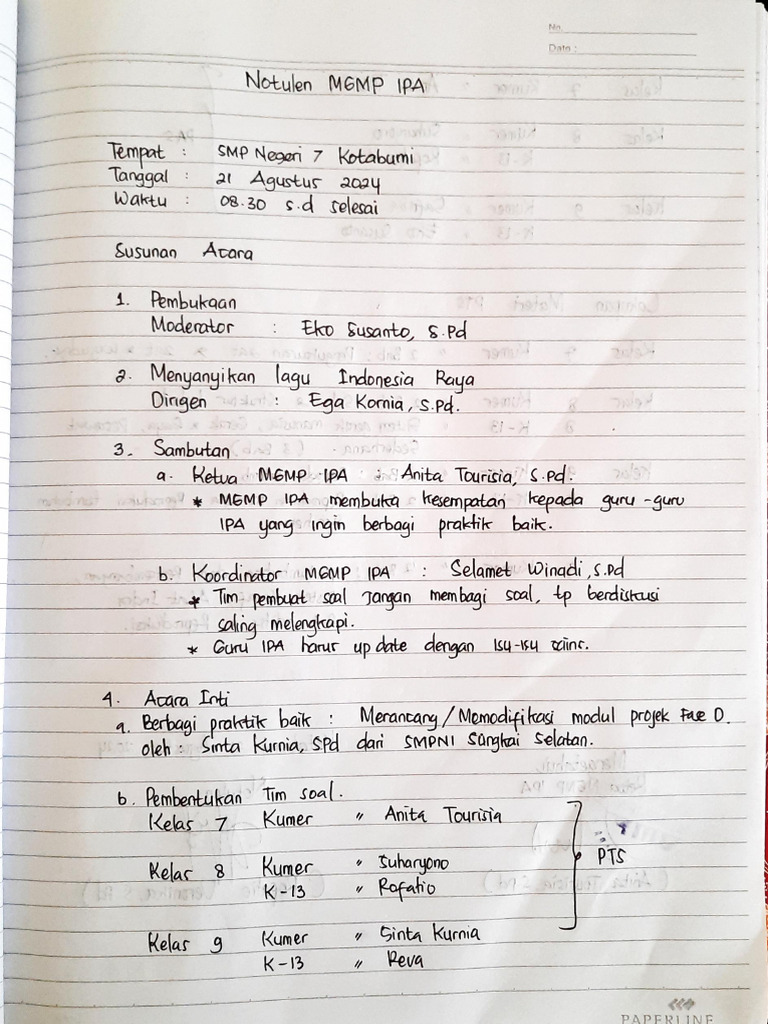 No.
Date :
Notulen MGMP IPA
Tempat : SMP Negeri 7 Kotabumi
Tanggal : 21 Agustus 2024
Waktu : 08.30 s.d selesai
Susunan Acara
1. Pembukaan
Moderator : Eko Susanto, S.Pd
2. Menyanyikan lagu Indonesia Raya
Dirigen : Ega Kornia, S.Pd.
3. Sambutan
a. Ketua MGMP IPA : Anita Tourisia, S.Pd.
* MGMP IPA membuka kesempatan kepada guru-guru
IPA yang ingin berbagi praktik baik.
b. Koordinator MGMP IPA : Selamet Winadi, S.Pd
* Tim pembuat soal Jangan membagi soal, tp berdiskusi
saling melengkapi.
* Guru IPA harus up date dengan Isu-isu sains.
4. Acara Inti
a. Berbagi praktik baik : Merancang/Memodifikasi modul projek Fase D.
oleh : Sinta Kurnia, SPd dari SMPN1 Sungkai Selatan.
b. Pembentukan Tim soal.
Kelas 7 Kumer " Anita Tourisia
Kelas 8 Kumer " Suharyono
K-13 " Rafatio
PTS
Kelas 9 Kumer " Sinta Kurnia
K-13 " Reva
PAPERLINE